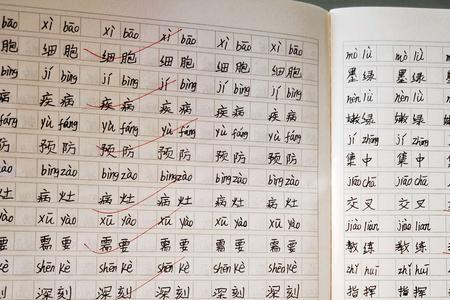 bāo xì bāo xì bāo xì bāo xì bāo xì bāo
胞 细胞 细胞 细胞 细胞 细胞
bìng jí bìng jí bìng jí bìng jí bìng jí bìng
病 疾病 疾病 疾病 疾病 疾病
fáng yù fáng yù fáng yù fáng yù fáng yù fáng
防 预防 预防 预防 预防 预防
zào bìng zào bìng zào bìng zào bìng zào bìng zào
灶 病灶 病灶 病灶 病灶 病灶
yào xū yào xū yào xū yào xū yào xū yào
要 需要 需要 需要 需要 需要
kè shēn kè shēn kè shēn kè shēn kè shēn kè
刻 深刻 深刻 深刻 深刻 深刻
mò lǜ mò lǜ
墨绿 墨绿
nèn lǜ nèn lǜ
嫩绿 嫩绿
jí zhōng jí zhōng
集中 集中
jiāo chā jiāo chā
交叉 交叉
jiào liàn jiào liàn
教练 教练
zhǐ huī zhǐ huī
指挥 指挥